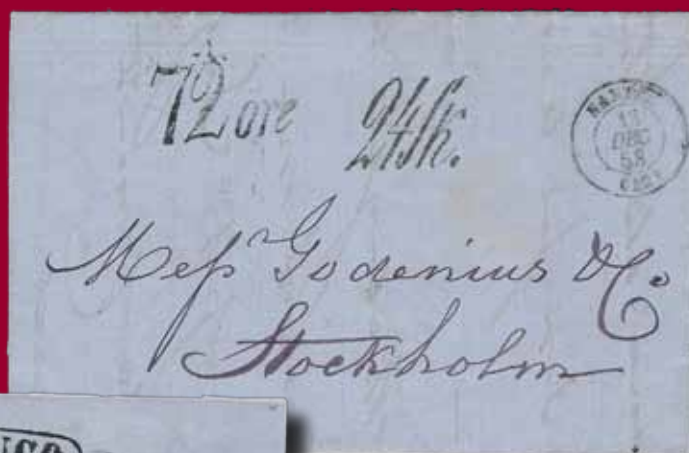 72 öre 24 sk.
DEC
58
Mess Godenius & Co
Stockholm